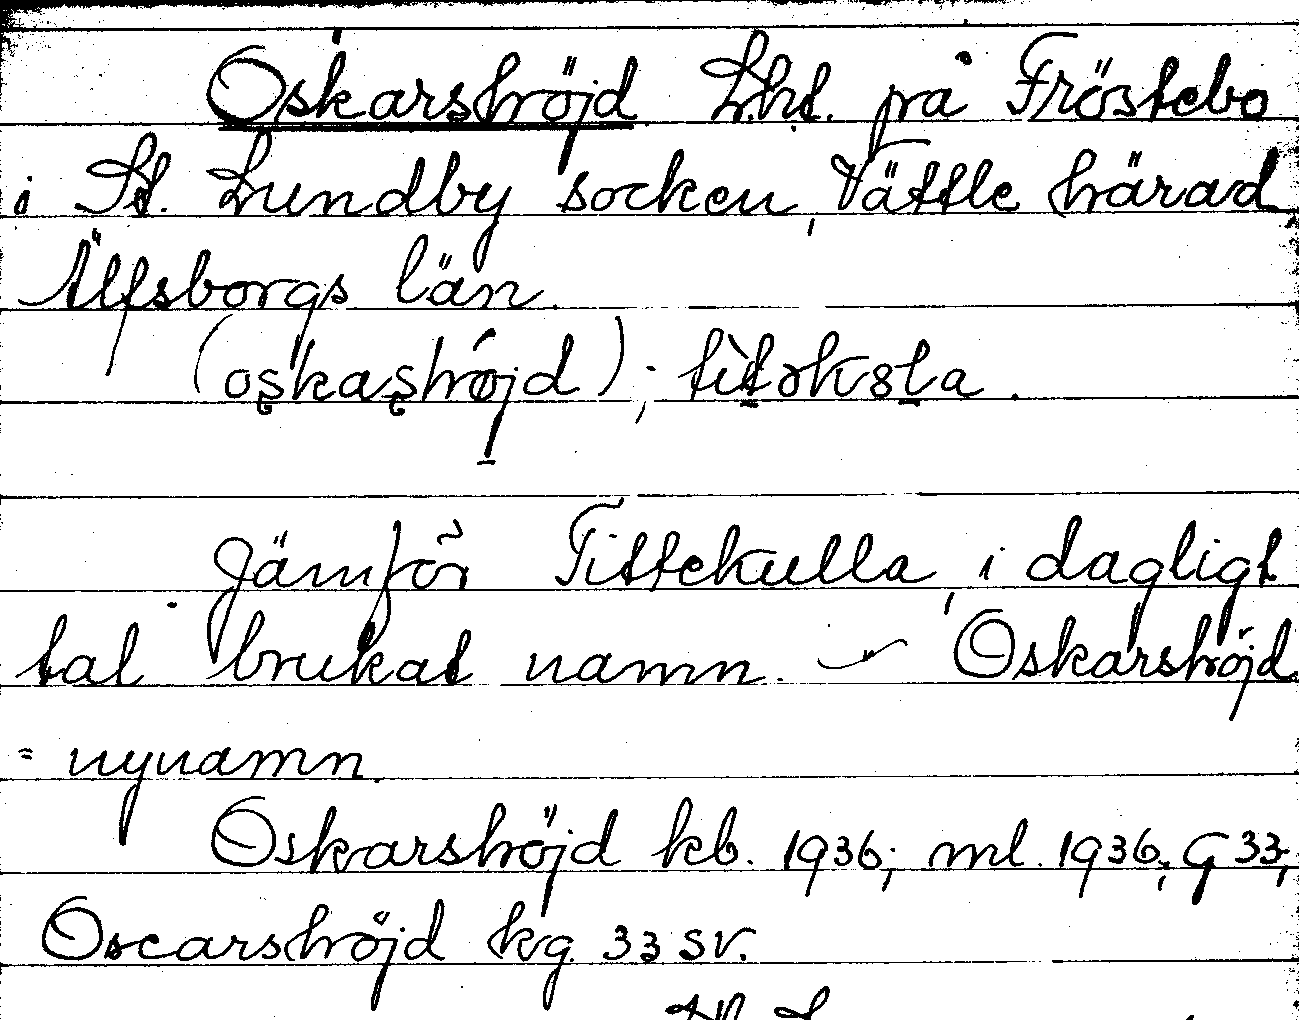 Oskarshöjd Lht. på Fröstebo
i St. Lundby socken, Vättle härad,
Älfsborgs län.
(oskashöjd);
Jämför Tittekulla, i dagligt
tal brukat namn. – Oskarshöjd
= nynamn.
Oskarshöjd kb. 1936; ml. 1936; G 33;
Oscarshöjd kg. 33 sv.